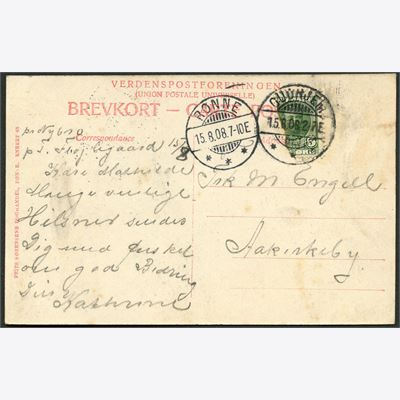 VERDENSPOSTFORENINGEN
(UNION POSTALE UNIVERSELLE)
BREVKORT —
Correspondance
RØNNE
15.8.08.7-10E
GUDHJEM
15.8.08.2-7E
5
pr Nykro
15/8
Kære Mathilde
Mange venlige
Hilsner sendes
Dig med Ønsket
om god Bedring
Din
Kathrine
Frk M. Engell.
Aakirkeby.